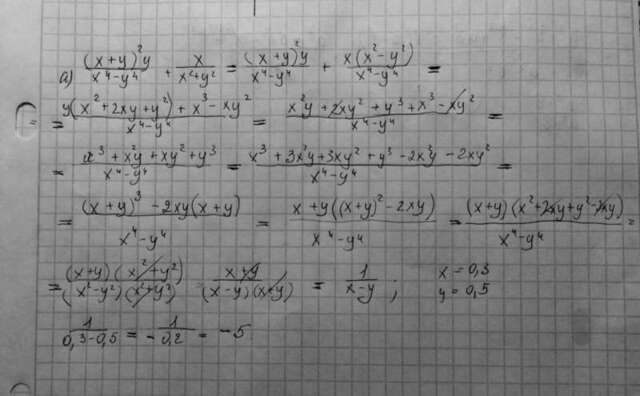 а) (x+y)²y / x⁴-y⁴ + x / x²+y² = (x+y)²y / x⁴-y⁴ + x(x²-y²) / x⁴-y⁴ =
= y(x²+2xy+y²)+x³-xy² / x⁴-y⁴ = x²y+2xy²+y³+x³-xy² / x⁴-y⁴ =
= x³+x²y+xy²+y³ / x⁴-y⁴ = x³+3x²y+3xy²+y³-2x²y-2xy² / x⁴-y⁴ =
= (x+y)³-2xy(x+y) / x⁴-y⁴ = x+y((x+y)²-2xy) / x⁴-y⁴ = (x+y)(x²+2xy+y²-2xy) / x⁴-y⁴ =
= (x+y)(x²+y²) / (x²-y²)(x²+y²) x+y / (x-y)(x+y) = 1 / x-y ; x=0,3
y=0,5
1 / 0,3-0,5 = -1 / 0,2 = -5